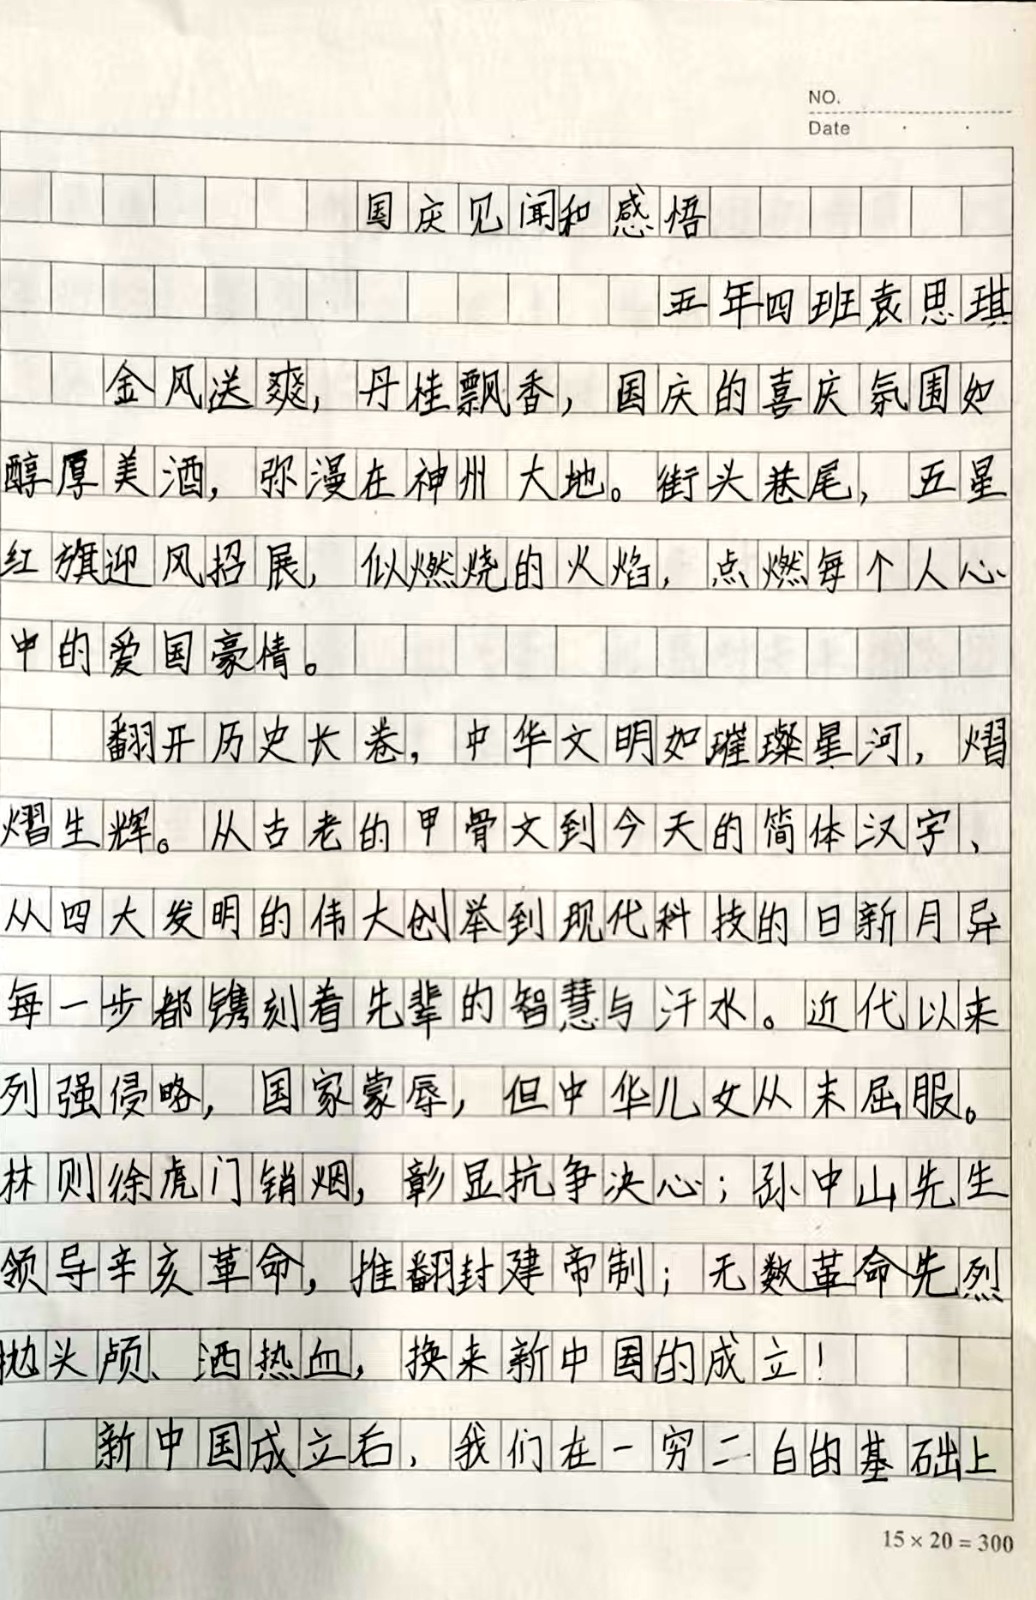 NO.
Date
国庆见闻和感悟
五年四班袁思琪
金风送爽，丹桂飘香，国庆的喜庆氛围如
醇厚美酒，弥漫在神州大地。街头巷尾，五星
红旗迎风招展，似燃烧的火焰，点燃每个人心
中的爱国豪情。
翻开历史长卷，中华文明如璀璨星河，熠
熠生辉。从古老的甲骨文到今天的简体汉字、
从四大发明的伟大创举到现代科技的日新月异
每一步都镌刻着先辈的智慧与汗水。近代以来
列强侵略，国家蒙辱，但中华儿女从未屈服。
林则徐虎门销烟，彰显抗争决心；孙中山先生
领导辛亥革命，推翻封建帝制；无数革命先烈
抛头颅、洒热血，换来新中国的成立！
新中国成立后，我们在一穷二白的基础上
15×20=300